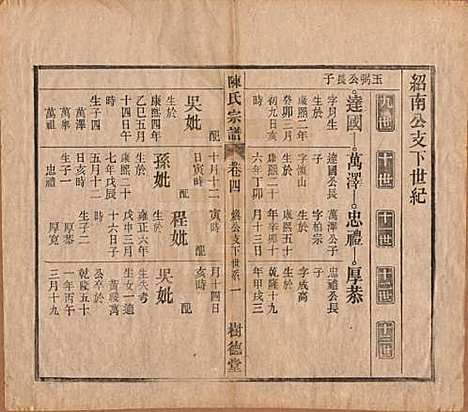 紹南公支下世紀
九世
十世
十一世
十二世
十三世
玉弼公長子
達國
萬澤
忠禮
厚恭
字月生
生於
康熙二年
癸卯二月
初九日亥
時
達國公長
子
字漢山
生於
康熙二十
六年丁卯
十月十二
日寅時
萬澤公長
子
字柏宗
生於
康熙五十
年辛卯十
月十三日
寅時
忠禮公長
子
字成高
生於
乾隆十九
年甲戌三
月十四日
亥時
陳氏宗譜
卷四
公支下世系
一
樹德堂
配
吳妣
生於
康熙四年
乙巳五月
十四日午
時
生子四
萬澤
萬祖
配
孫妣
生於
康熙二十
七年戊辰
五月十二
日亥時
生子一
忠禮
配
程妣
生於
雍正六年
戊申三月
十六日子
時
生子二
厚恭
厚寬
配
吳妣
生失考
生女一適
萬
公卒於
乾隆五十
一年丙午
三月十九